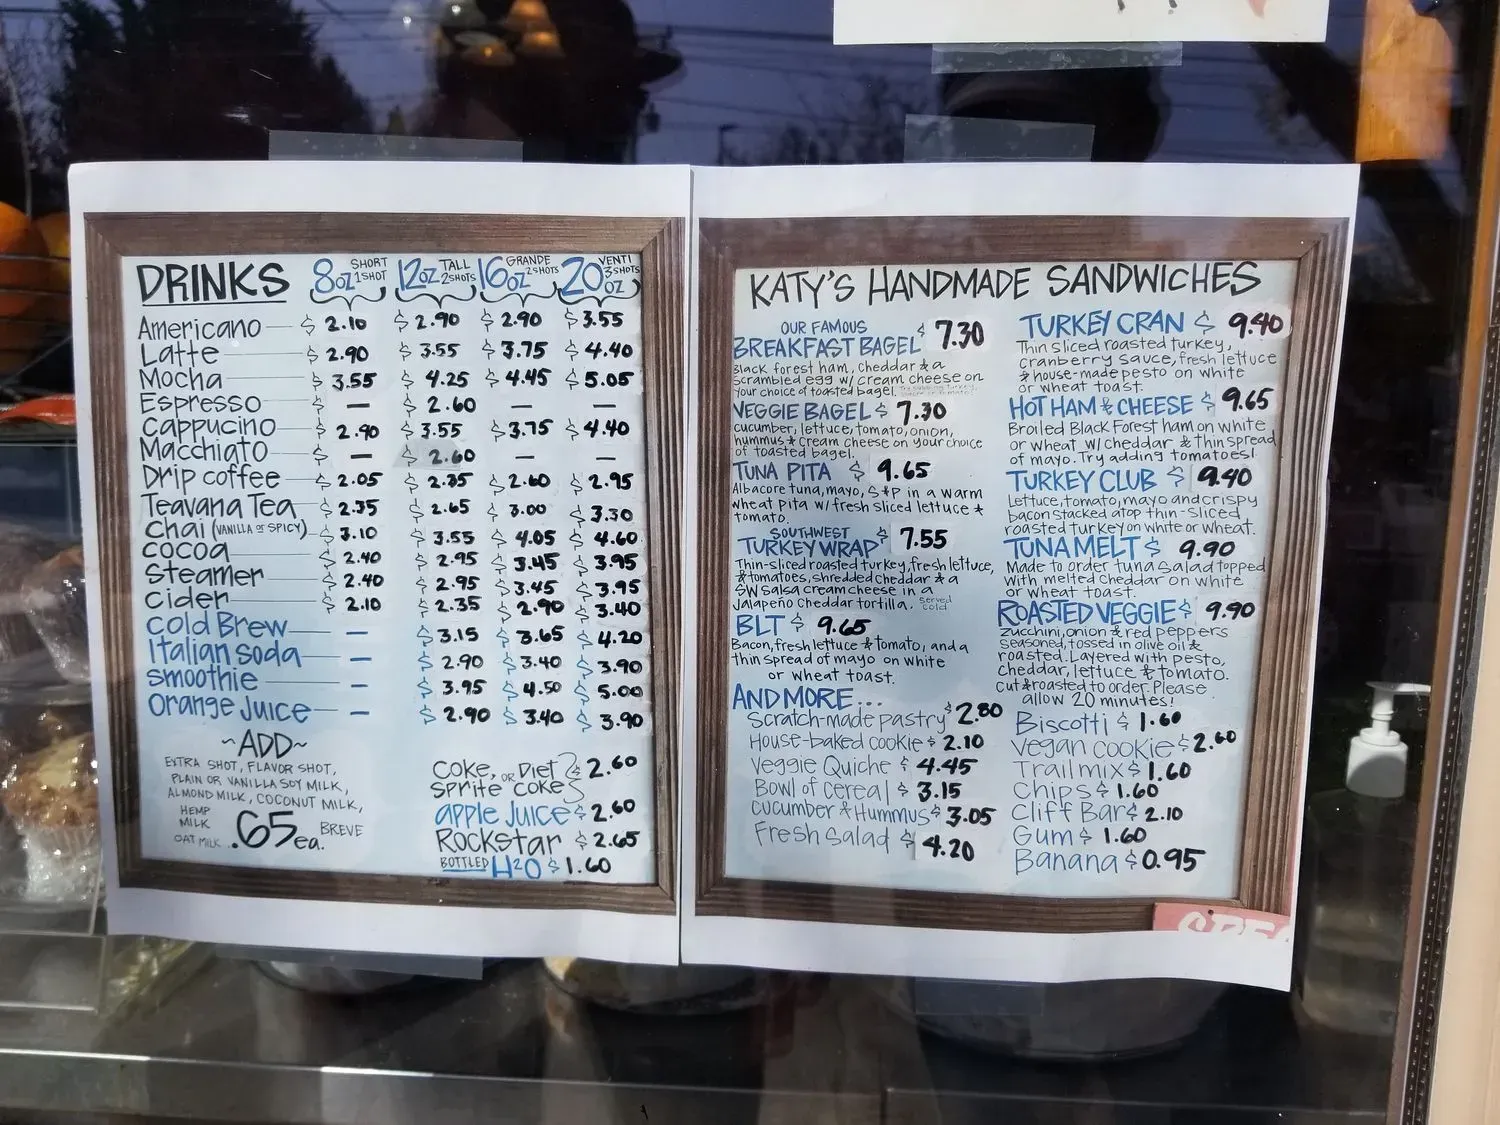 DRINKS 8oz SHORT 1SHOT 12oz TALL 2SHOTS 16oz GRANDE 2SHOTS 20oz VENTI 3SHOTS
Americano $2.10 $2.90 $2.90 $3.55
Latte $2.90 $3.55 $3.75 $4.40
Mocha $3.55 $4.25 $4.45 $5.05
Espresso $ — $2.60 — —
Cappucino $2.90 $3.55 $3.75 $4.40
Macchiato $ — $2.60 — —
Drip coffee $2.05 $2.35 $2.60 $2.95
Teavana Tea $2.35 $2.65 $3.00 $3.30
Chai (VANILLA or SPICY) $3.10 $3.55 $4.05 $4.60
Cocoa $2.40 $2.95 $3.45 $3.95
Steamer $2.40 $2.95 $3.45 $3.95
Cider $2.10 $2.35 $2.90 $3.40
Cold Brew — $3.15 $3.65 $4.20
Italian Soda — $2.90 $3.40 $3.90
Smoothie — $3.95 $4.50 $5.00
Orange Juice — $2.90 $3.40 $3.90
~ADD~
EXTRA SHOT, FLAVOR SHOT,
PLAIN OR VANILLA SOY MILK,
ALMOND MILK, COCONUT MILK,
HEMP
MILK
OAT MILK .65 ea. BREVE
Coke, or Diet
Sprite Coke $2.60
Apple Juice $2.60
Rockstar $2.65
BOTTLED H2O $1.60
KATY'S HANDMADE SANDWICHES
OUR FAMOUS
BREAKFAST BAGEL $7.30
Black forest ham, cheddar & a
scrambled egg w/ cream cheese on
your choice of toasted bagel.
VEGGIE BAGEL $7.30
cucumber, lettuce, tomato, onion,
hummus & cream cheese on your choice
of toasted bagel.
TUNA PITA $9.65
Albacore tuna, mayo, S&P in a warm
wheat pita w/ fresh sliced lettuce &
tomato.
SOUTHWEST
TURKEY WRAP $7.55
Thin-sliced roasted turkey, fresh lettuce,
& tomatoes, shredded cheddar & a
SW salsa cream cheese in a
Jalapeño cheddar tortilla. Served
cold
BLT $9.65
Bacon, fresh lettuce & tomato, and a
thin spread of mayo on white
or wheat toast.
TURKEY CRAN $9.40
Thin sliced roasted turkey,
cranberry sauce, fresh lettuce
& house-made pesto on white
or wheat toast.
HOT HAM & CHEESE $9.65
Broiled Black Forest ham on white
or wheat w/ cheddar & thin spread
of mayo. Try adding tomatoes!
TURKEY CLUB $9.40
Lettuce, tomato, mayo and crispy
bacon stacked atop thin-sliced
roasted turkey on white or wheat.
TUNA MELT $9.90
Made to order tuna salad topped
with melted cheddar on white
or wheat toast.
ROASTED VEGGIE $9.90
zucchini, onion & red peppers
seasoned, tossed in olive oil &
roasted. Layered with pesto,
cheddar, lettuce & tomato.
Cut & roasted to order. Please
allow 20 minutes!
AND MORE...
Scratch-made pastry $2.80
House-baked cookie $2.10
Veggie Quiche $4.45
Bowl of Cereal $3.15
Cucumber & Hummus $3.05
Fresh Salad $4.20
Biscotti $1.60
Vegan cookie $2.60
Trail mix $1.60
Chips $1.60
Cliff Bar $2.10
Gum $1.60
Banana $0.95